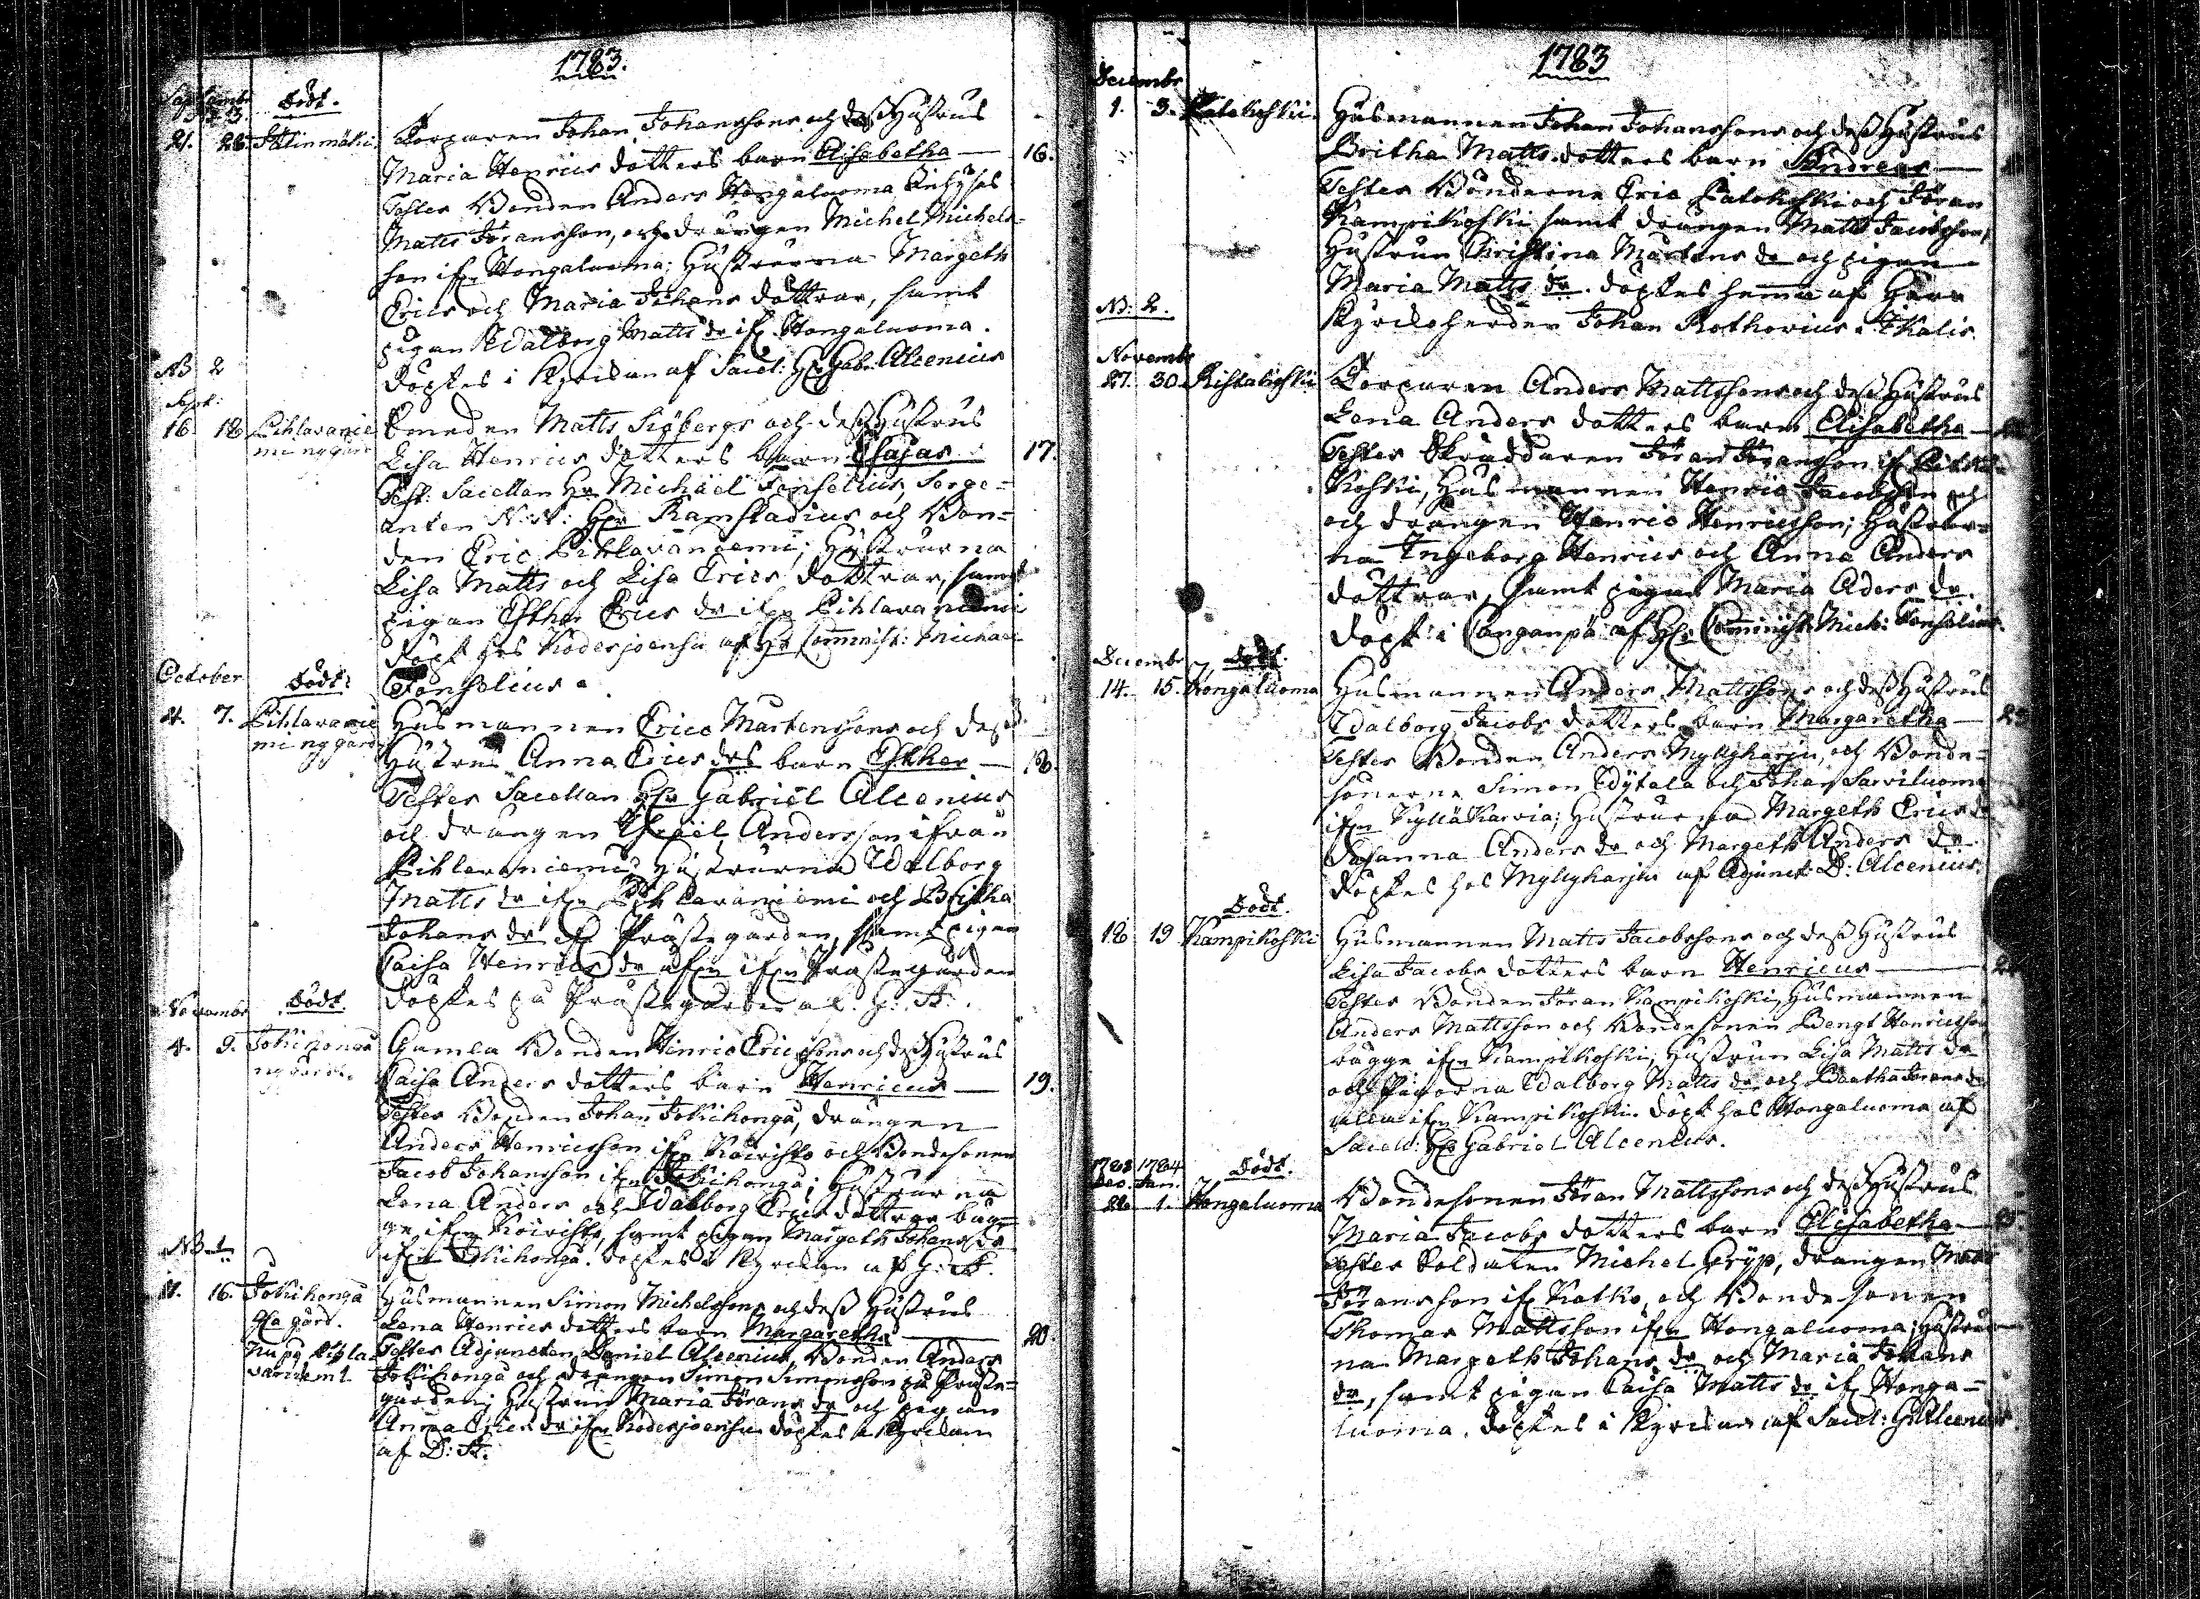 1783.
Septembr
Födt.
21. 28. Stlinmäki. Torparen Johan Johanssons och deß Hustrus
Maria Henrics dotters barn Elisabetha — 16.
Testes Bonden Anders Hongaluoma
Matts Jöransson, och drängen Michel Michels-
son ifn Hongaluoma; Hustrurna Margeth
Erics och Maria Johans döttrar, samt
pigan Walborg Matts dr ifn Hongaluoma.
NB 2
döptes i Kyrckan af Sacel: Hr Gabr: Alcenius
Sept:
16 18 Pihlavanie
mi ny gård
Smeden Matts Siöbergs och deß Hustrus
Lisa Henrics dotters barn Esajas 17.
Test: Sacellan Hr Michäel Fonselius, Serge-
anten N:N: Hr Ramstadius och Bon-
den Eric Pihlavaniemi; Hustrurna
Lisa Matts och Lisa Erics döttrar, samt
pigan Esther Erics dr ifn Pihlavaniemi
döpt hos Kodesjoensu af Hr Comminist: Michael
Fonselius.
October
Födt:
4. 7. Pihlavanie
mi ny gård
Husmannen Erics Martenssons och deß
Hustrus Anna Erics drs barn Esther — 18.
Testes Sacellan Hr Gabriel Alcenius
och drängen Israël Andersson ifrån
Pihlavaniemi, Hustrurna Walborg
Matts dr ifn Pihlavaniemi och Britha
Johans dr ifn Prästegården, samt pigan
Caisa Henrics dr ifn Prästegården
döptes på Prästegården af G: A:.
Novembr
Födt.
4. 9. Jokihonga
ny gård.
Gamla Bonden Hinric Ericssons och deß Hustrus
Caisa Anders dotters barn Henricus — 19.
Testes Bonden Johan Jokihonga, drängen
Anders Henricsson ifn Koivisto och Bondesonen
Jacob Johansson ifn Jokihonga; Hustrurna
Lena Anders och Walborg Erics döttrar båg-
ge ifn Koivisto, samt pigan Margeth Johans dr
ifn Jokihonga. döptes i Kyrckan af G: A.
NB 1
11. 16. Jokihonga
gla gård.
nu på Pihla
vaniemi.
Husmannen Simon Michelssons och deß Hustrus
Lena Henrics dotters barn Margaretha — 20.
Testes Adjuncten Daniel Alcenius, Bonden Anders
Jokihonga och drängen Simon Simonsson på Präste-
gården; Hustrun Maria Jörans dr och pigan
Anna Erics dr ifn Kodesjoensu döptes i Kyrckan
af D: A.
1783
Decembr
1. 3. Patokoski. Husmannen Johan Johanssons och deß Hustrus
Britha Matts dotters barn Andreas —
Testes Bönderne Eric Patokoski och Jöran
Kampikoski samt drängen Matts Jacobsson,
Hustrun Christina Mårtens dr och pigan
Maria Matts dr. döptes hemma af Herr
NB: 2.
Kyrckoherden Johan Rothovius i Ikalis.
Novembr
27. 30. Ristakoski Torparen Anders Mattssons och deß Hustrus
Lena Anders dotters barn Elisabetha —
Testes Skräddaren Jöran Jöransson ifn
Koski, Husmannen Henric Jacobsson och
och drängen Henric Henricsson; Hustrur-
na Ingeborg Henrics och Anna Anders
döttrar, samt pigan Maria Aders dr.
döpt i Canganpä af Hr Comminist: Mich: Fonselius.
Decembr Födt.
14. 15. Hongaluoma Husmannen Anders Mattssons och deß Hustrus
Walborg Jacobs dotters barn Margaretha — 23
Testes Bonden Anders Myllyharju, och Bonde-
sönerne Simon Wytala och Johan Sarviluoma
ifn Kyläkarvia; Hustrurna Margeth Erics dr
Susanna Anders dr och Margeth Anders dr
döptes hos Myllyharju af Adjunct: D: Alcenius.
Födt.
18 19 Kampikoski Husmannen Matts Jacobssons och deß Hustrus
Lisa Jacobs dotters barn Henricus — 24
Testes Bonden Jöran Kampikoski, Husmannen
Anders Mattsson och Bondesonen Bengt Henricsson
bägge ifn Kampikoski; Hustrun Lisa Matts dr
och Pigorna Walborg Matts dr och Jörans dr
alla ifn Kampikoski. döpt hos Hongaluoma af
Sacell: Hr Gabriel Alcenius.
1783 1784 Födt.
Dec. Jan.
28 1. Hongaluoma Bondesonen Jöran Mattssons och deß Hustrus
Maria Jacobs dotters barn Elisabetha — 25.
Testes Soldaten Michel Gryp, drängen Matts
Jöransson ifn Katko, och Bondesonen
Thomas Mattsson ifn Hongaluoma; Hustrur-
na Margeth Johans dr och Maria Johans
dr, samt pigan Caisa Matts dr ifn Honga-
luoma. döptes i Kyrckan af Sacel: G: Alcenius.